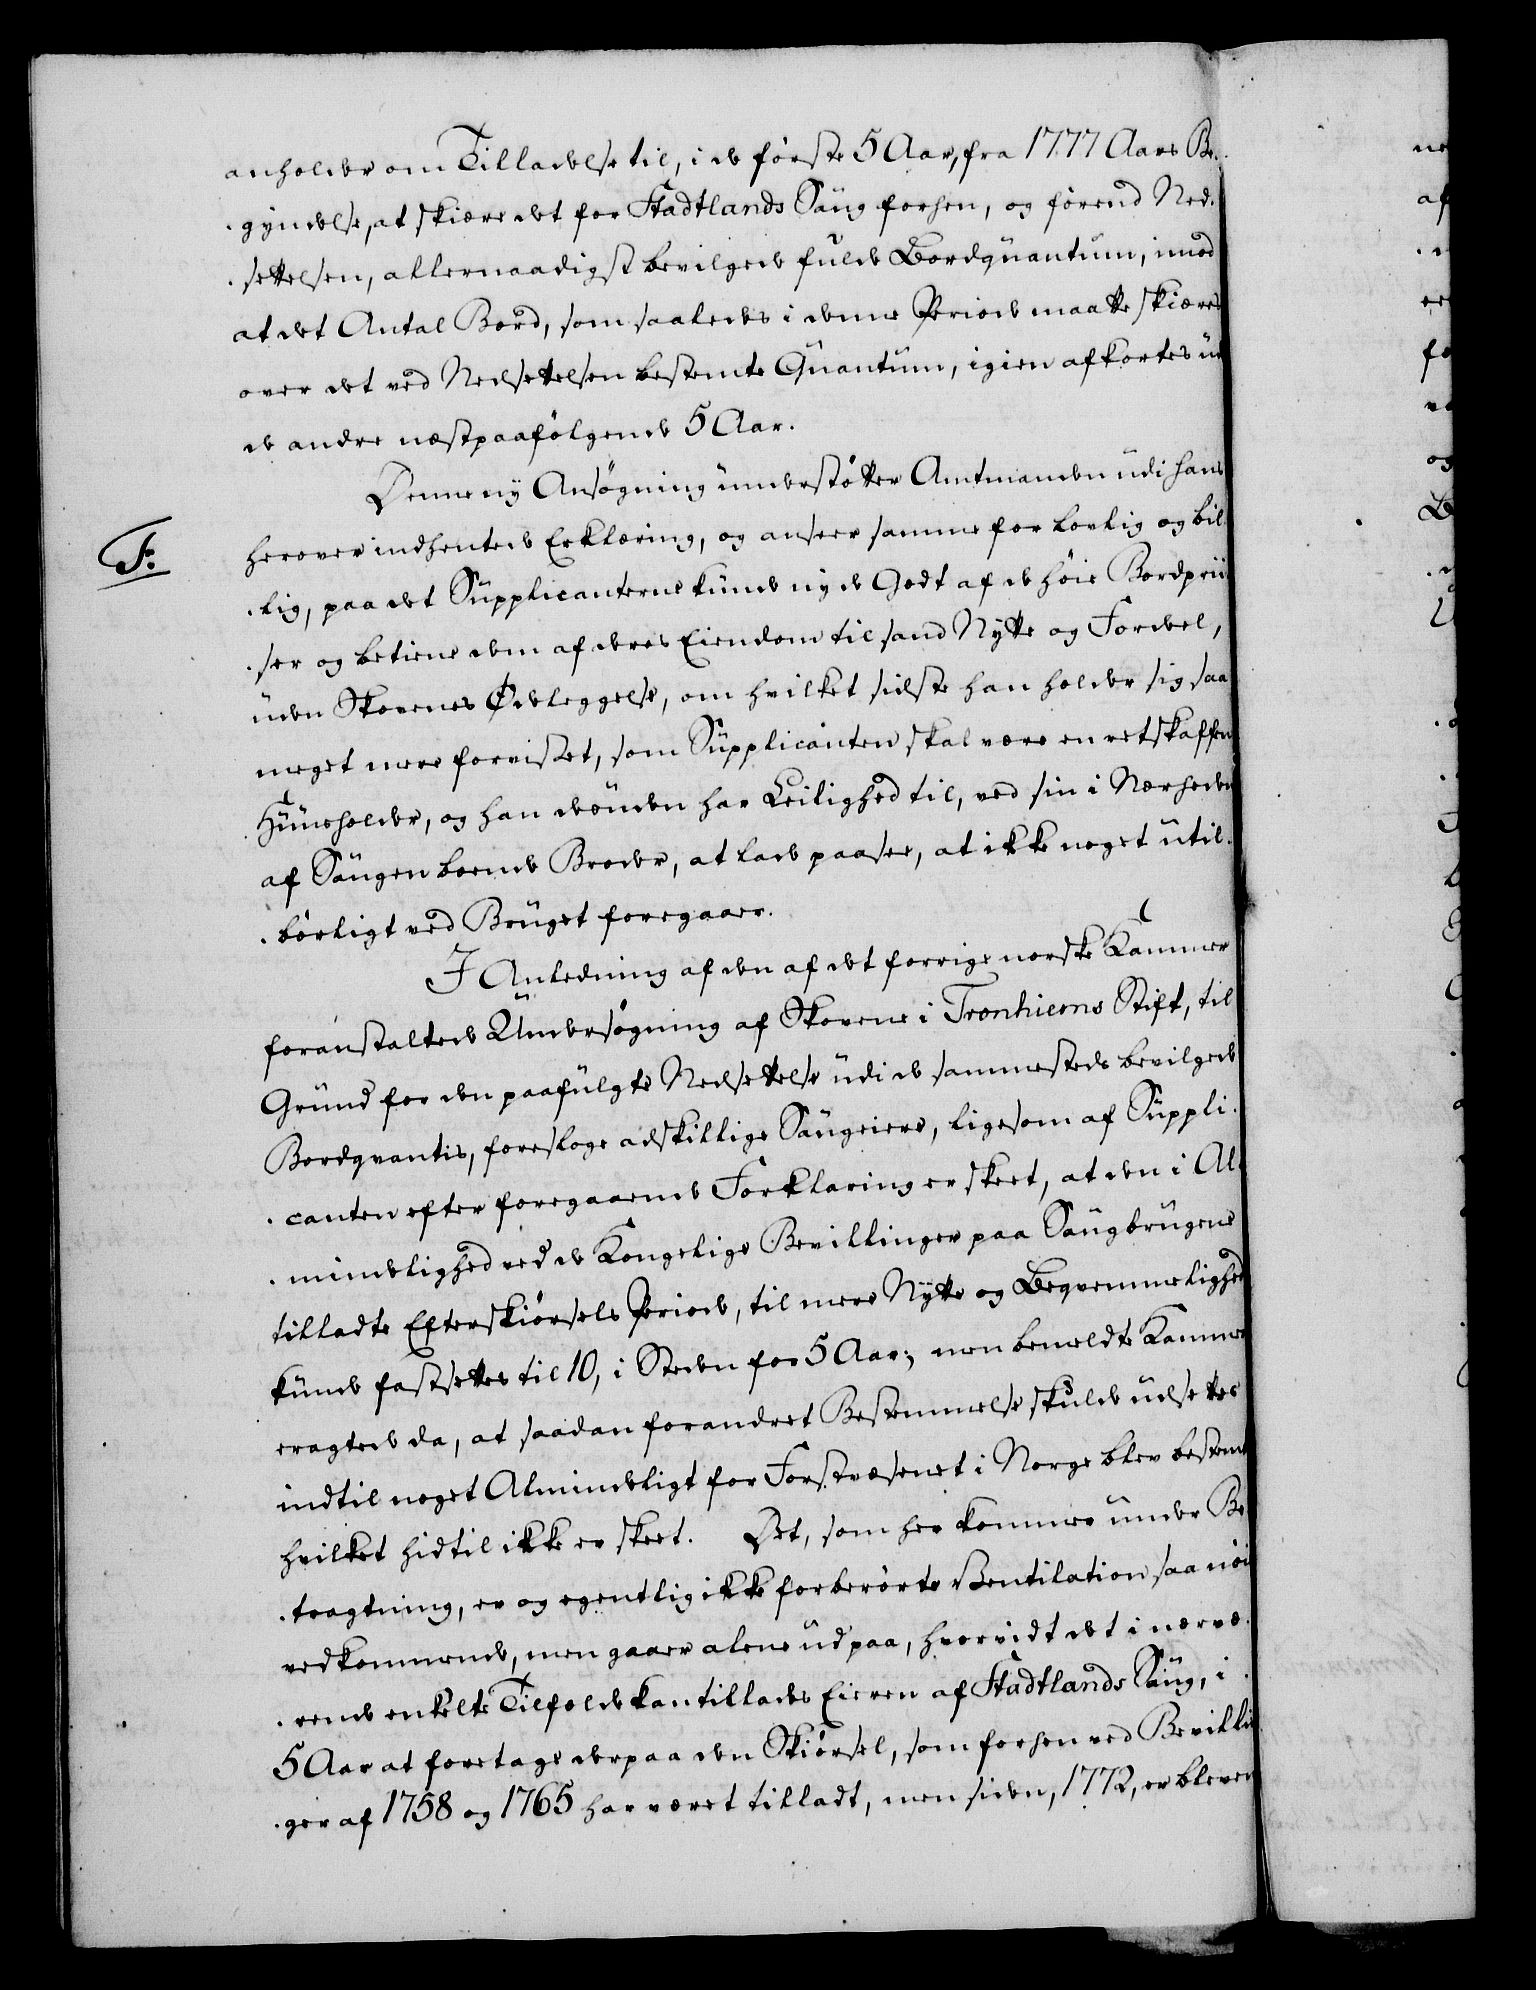 anholder om Tilladelse til, i de første 5 Aar, fra 1777 Aars Be-
gyndelse, at skiære det for Stadtlands Saug forhen, og førend Ned-
settelsen, allernaadigst bevilgede fulde Bordquantum, imod
at det Antal Bord, som saaledes i denne Periode maatte skiæres
over det ved Nedsettelsen bestemte Quantum, igien afkortes ud
de andre næstpaafølgende 5 Aar.
Denne ny Ansøgning understøtter Amtmanden udi hans
F.
herover indhentede Erklæring, og anseer samme for lovlig og bil-
lig, paa det Supplicanterne kunde nyde Godt af de høie Bordprii-
ser og betiene dem af deres Eiendom til sand Nytte og Fordeel,
uden Skovenes Ødeleggelse, om hvilket sidste han holder sig saa
meget mere forvisset, som Supplicanten skal være en retskaffen
Huusholder, og han desuden har Leilighed til, ved sin i Nærheden
af Saugen boende Broder, at lade paasee, at ikke noget util-
børligt ved Bruget foregaaer.
I Anledning af den af det forrige norske Kammer
foranstaltede Undersøgning af Skovene i Tronhiems Stift, til
Grund for den paafulgte Nedsettelse udi de sammesteds bevilgede
Bordqvantis, foresloge adskillige Saugeiere, ligesom af Suppli-
canten efter foregaaende Forklaring er skeet, at den i Al-
mindelighed ved de Kongelige Bevillinger paa Saugbrugene
tilladte Efterskiørsels Periode, til mere Nytte og Beqvemmelighed
kunde fastsettes til 10, i Steden for 5 Aar; men bemeldte Kammer
eragtede da, at saadan forandret Bestemmelse skulde udsettes
indtil noget Almindeligt for Forstvæsenet i Norge blev bestemt
hvilket hidtil ikke er skeet. Det, som her kommer under Be-
tragtning, er og egentlig ikke forberørte Ventilation saa nøie
vedkommende, men gaaer alene ud paa, hvorvidt det i nærvæ-
rende enkelte Tilfælde kan tillades Eieren af Stadtlands Saug, i
5 Aar at foretage derpaa den Skiørsel, som forhen ved Bevillin-
ger af 1758 og 1765 har været tilladt, men siden, 1772, er bleven